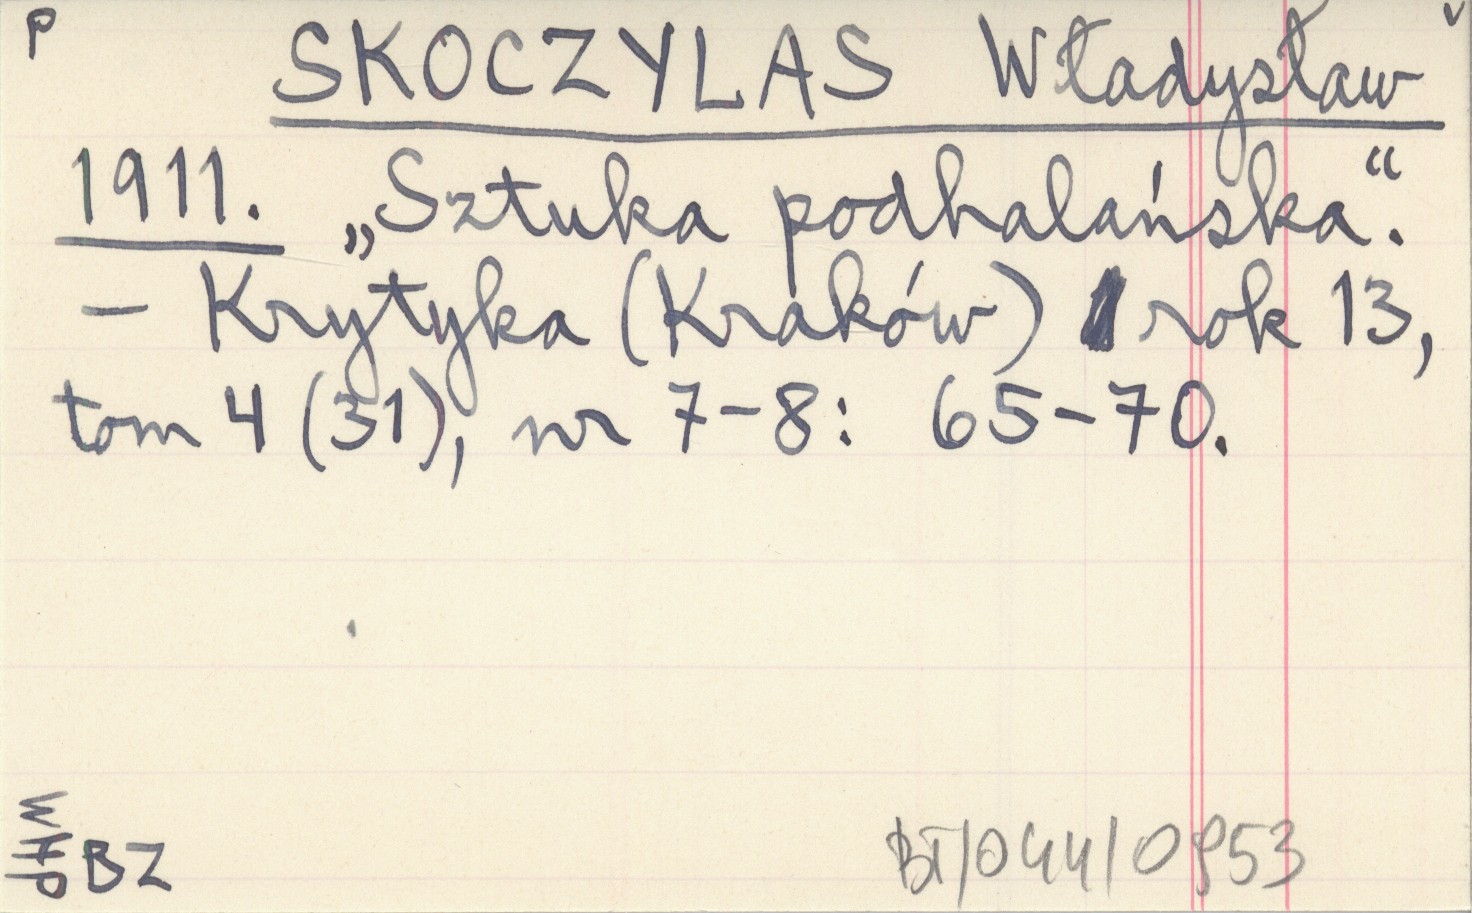 P
v
SKOCZYLAS Władysław
1911. „Sztuka podhalańska“.
– Krytyka (Kraków) rok 13,
tom 4 (31), nr 7–8: 65–70.
BZ
BT/044/0953